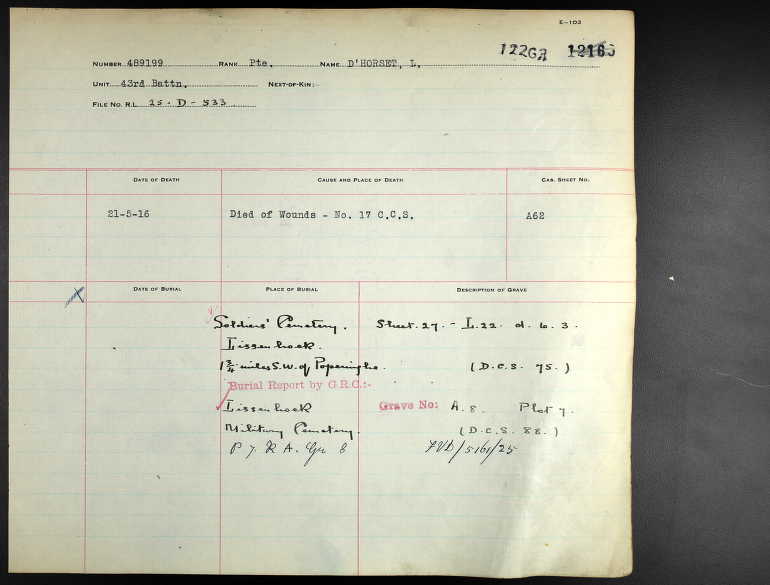 E-103
122GR 12163
NUMBER 489199 RANK Pte. NAME D'HORSET, L.
UNIT 43rd Battn. NEXT-OF-KIN:-
FILE NO. R.L. 25. D - 533
DATE OF DEATH CAUSE AND PLACE OF DEATH CAS. SHEET NO.
21-5-16 Died of Wounds - No. 17 C.C.S. A62
DATE OF BURIAL PLACE OF BURIAL DESCRIPTION OF GRAVE
Soldiers' Cemetery. Sheet. 27. - L. 22. d. 6. 3.
Lissenhoek.
1 3/4 miles S.W. of Poperinghe. (D.C.S. 75.)
Burial Report by G.R.C.:-
Lissenhoek Grave No: A. 8. Plot 7.
Military Cemetery. (D.C.S. 88.)
P 7. R A. Gr 8